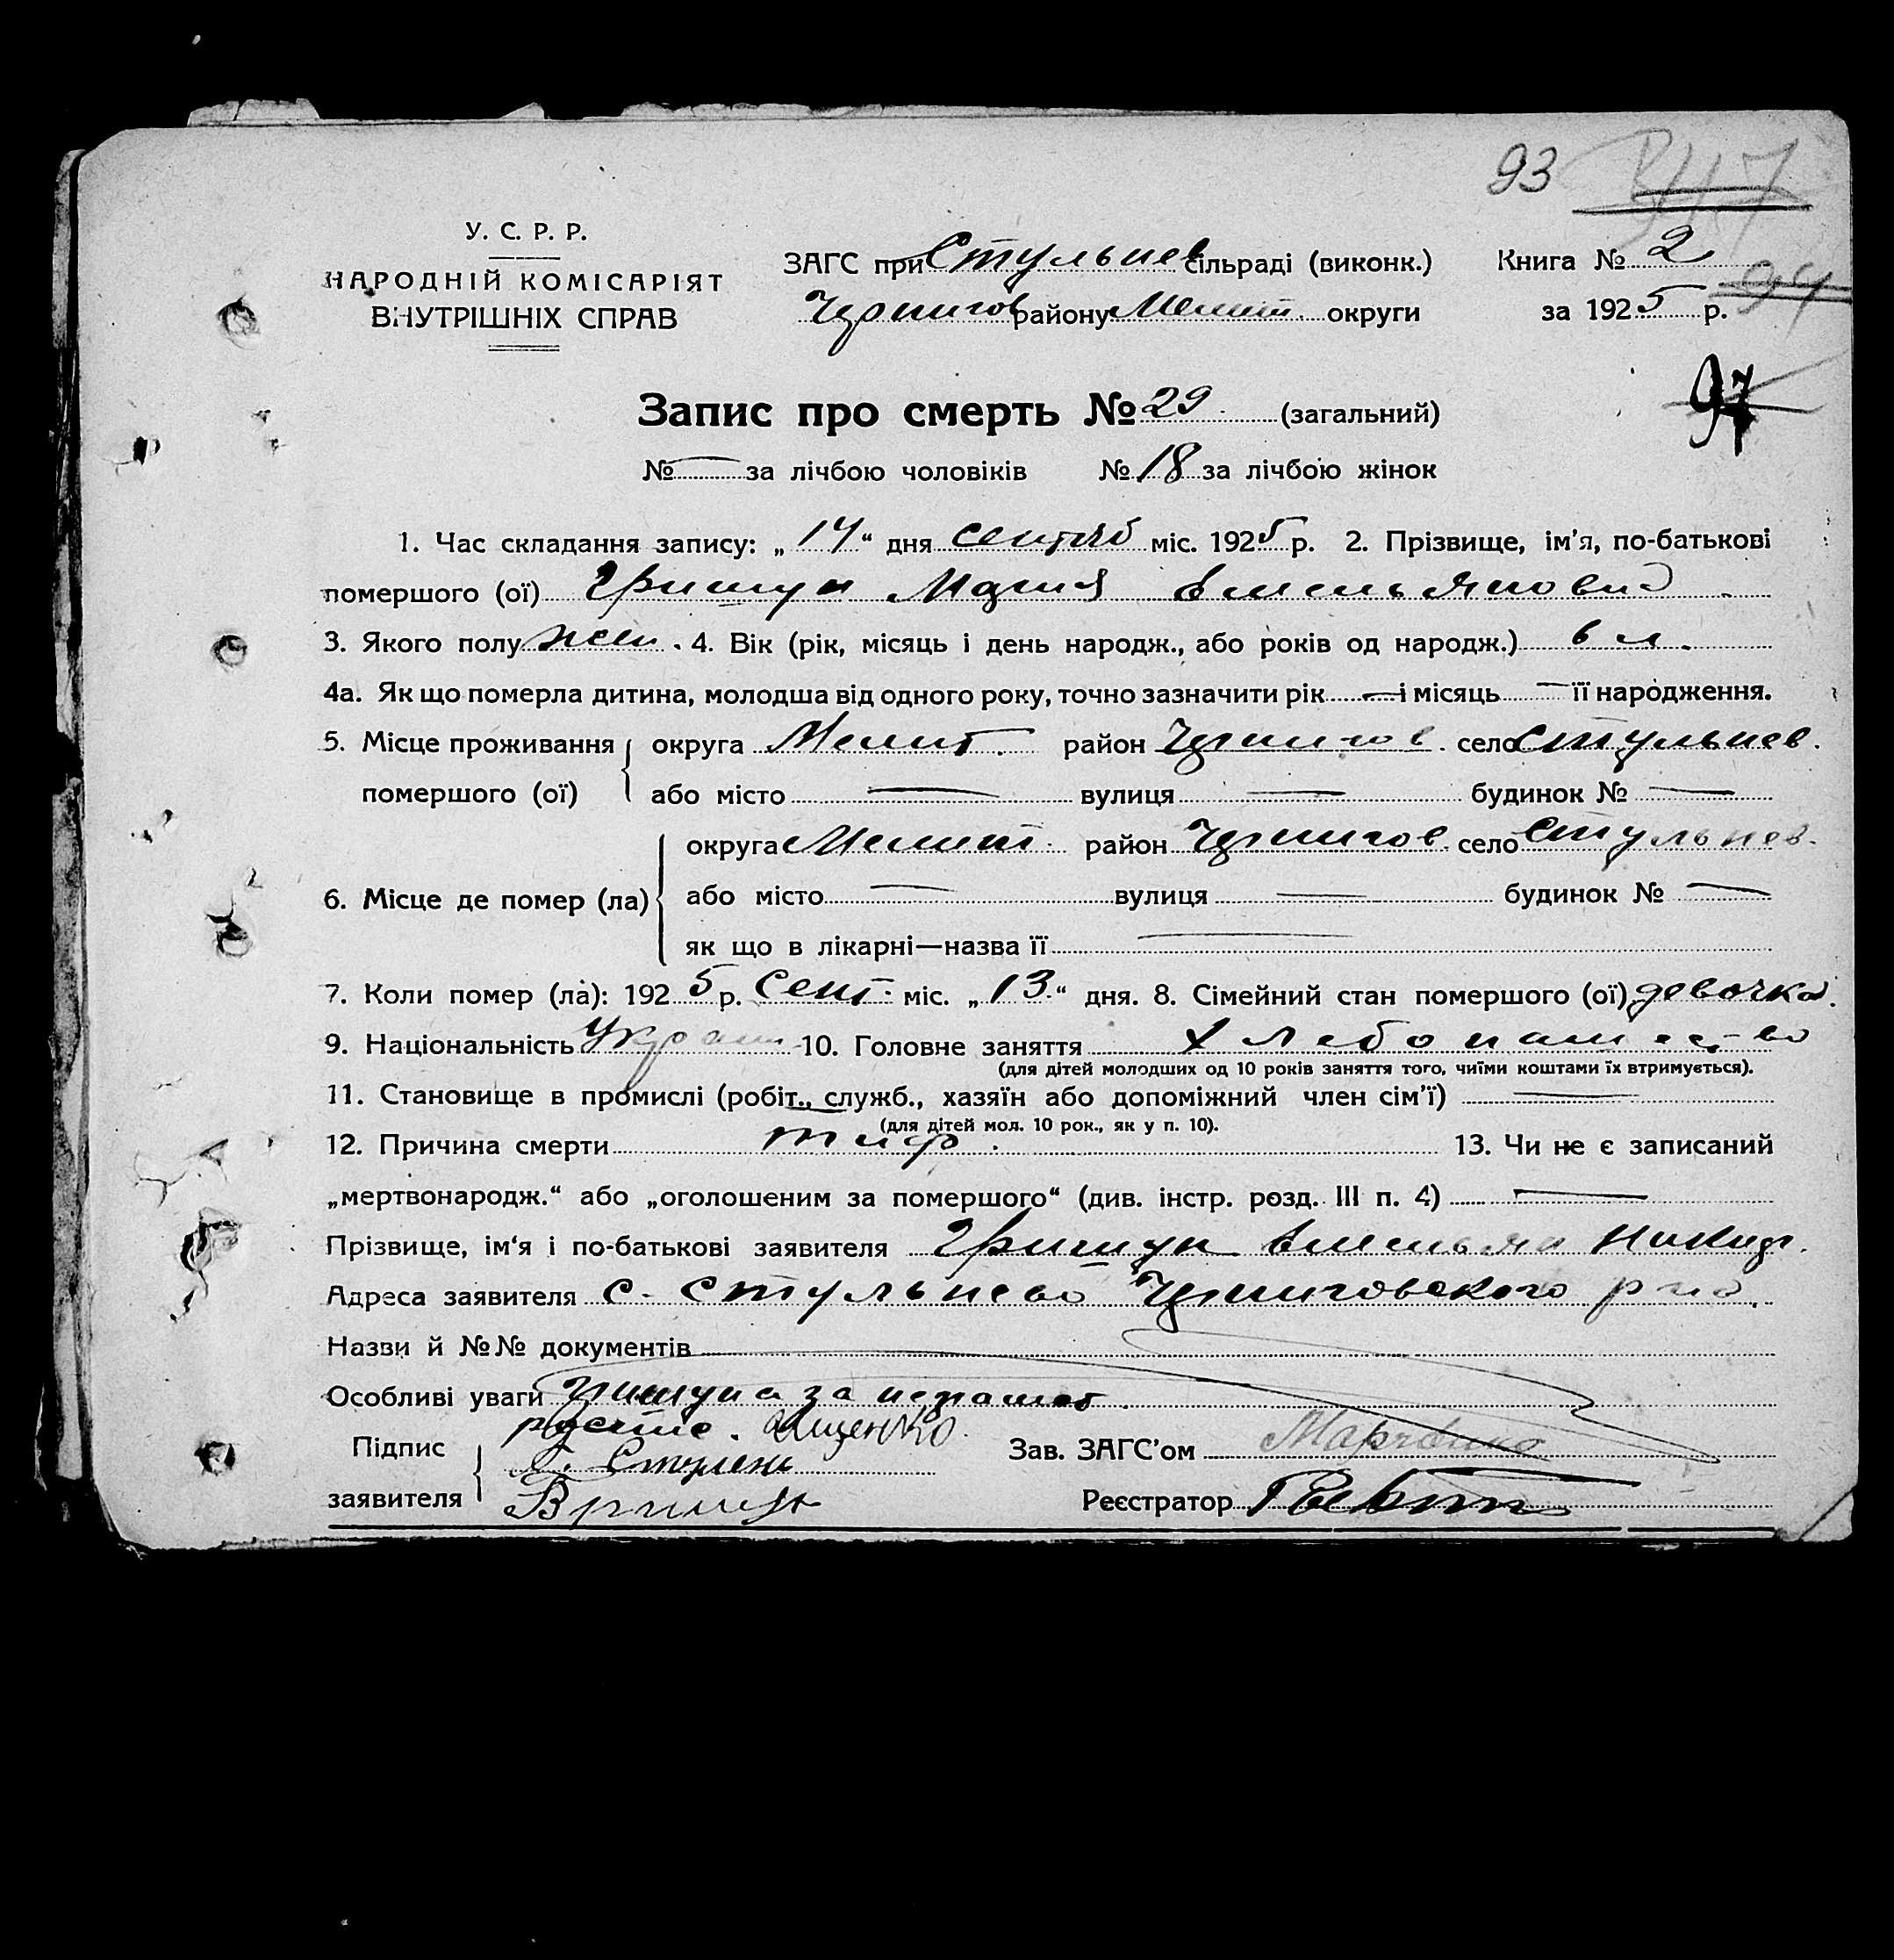 93 347
У. С. Р. Р.
НАРОДНІЙ КОМІСАРІЯТ
ВНУТРІШНІХ СПРАВ
ЗАГС при Стульнев сільраді (виконк.)
Чернигов району Мелит. округи
Книга № 2
94
за 1925 р.
97
Запис про смерть № 29. (загальний)
№ — за лічбою чоловіків № 18 за лічбою жінок
1. Час складання запису: „14“ дня сентяб міс. 1925 р. 2. Прізвище, ім'я, по-батькові
помершого (ої) Гришун Мария Емельяновна
3. Якого полу жен. 4. Вік (рік, місяць і день народж., або років од народж.) 6 л.
4а. Як що померла дитина, молодша від одного року, точно зазначити рік — і місяць — її народження.
5. Місце проживання помершого (ої) округа Мелит. район Чернигов. село Стульнев.
або місто — вулиця — будинок № —
6. Місце де помер (ла) округа Мелит. район Чернигов. село Стульнев.
або місто — вулиця — будинок № —
як що в лікарні—назва її —
7. Коли помер (ла): 1925 р. Сент. міс. „13.“ дня. 8. Сімейний стан помершого (ої) девочка.
9. Національність Украин 10. Головне заняття хлебопашество
(для дітей молодших од 10 років заняття того, чиїми коштами їх втримується).
11. Становище в промислі (робіт., служб., хазяїн або допоміжний член сім'ї) —
(для дітей мол. 10 рок., як у п. 10).
12. Причина смерти тиф. 13. Чи не є записаний
„мертвонародж.“ або „оголошеним за помершого“ (див. інстр. розд. III п. 4) —
Прізвище, ім'я і по-батькові заявителя Гришун Емельян Никит.
Адреса заявителя с. Стульнево Черниговского р-на.
Назви й №№ документів
Особливі уваги Гришуна за неграмот
Підпис заявителя
Зав. ЗАГС'ом
Реєстратор